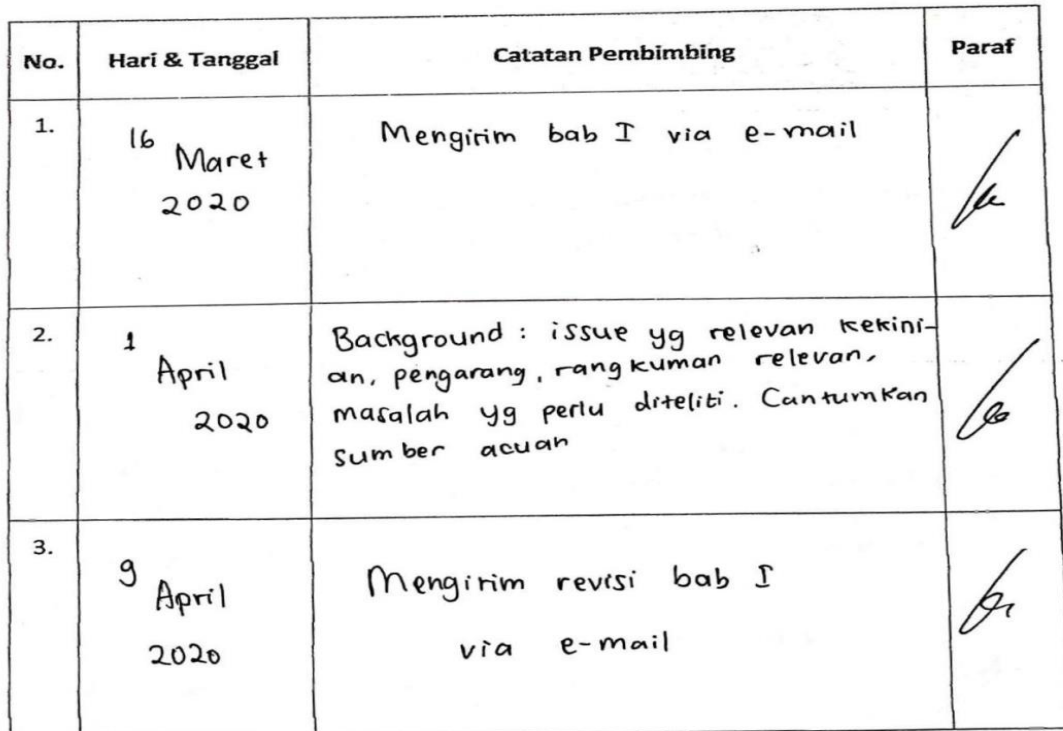 No. Hari & Tanggal Catatan Pembimbing Paraf
1.
16 Maret
2020
Mengirim bab I via e-mail
2.
1
April
2020
Background : issue yg relevan kekini-
an, pengarang, rangkuman relevan,
masalah yg perlu diteliti. Cantumkan
sumber acuan
3.
9
April
2020
Mengirim revisi bab I
via e-mail